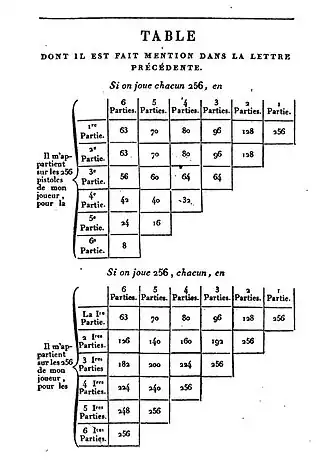 TABLE
DONT IL EST FAIT MENTION DANS LA LETTRE
PRÉCÉDENTE.
Si on joue chacun 256, en
6 Parties. 5 Parties. 4 Parties. 3 Parties. 2 Parties. 1 Partie.
Il m'ap-
partient
sur les 256
pistoles
de mon
joueur,
pour la
1re Partie. 63 70 80 96 128 256
2e Partie. 63 70 80 96 128
3e Partie. 56 60 64 64
4e Partie. 42 40 32
5e Partie. 24 16
6e Partie. 8
Si on joue 256, chacun, en
6 Parties. 5 Parties. 4 Parties. 3 Parties. 2 Parties. 1 Partie.
Il m'ap-
partient
sur les 256
de mon
joueur,
pour les
La Ire Partie. 63 70 80 96 128 256
2 Ires Parties. 126 140 160 192 256
3 Ires Parties 182 200 224 256
4 Ires Parties. 224 240 256
5 Ires Parties. 248 256
6 Ires Parties. 256